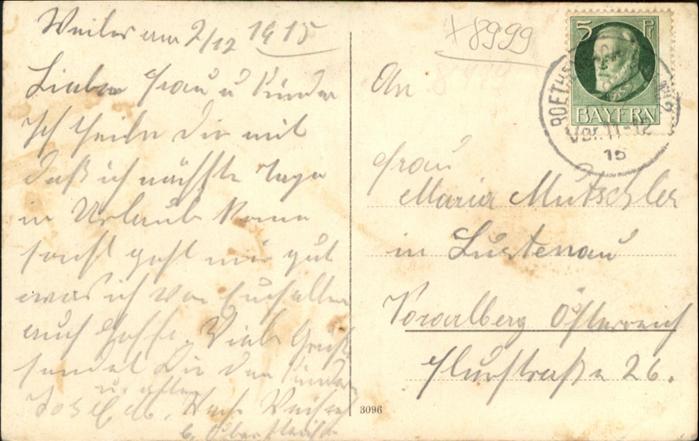 Weiler am 2/12 1915
Liebe Frau u Kinder
Ich theile Dir mit
daß ich nächste Tage
in Urlaub komme
sonst geht mir gut
was ich von Euch allen
auch hoffe. Viele Grüße
sendet Dir den Kinder
u. allen
Weiler
b.
+8999
An
Frau
Maria Mutschler
in Lustenau
Vorarlberg Österreich
Flurstraße 26.
5 P
BAYERN
Vor. 11-12
15
3096